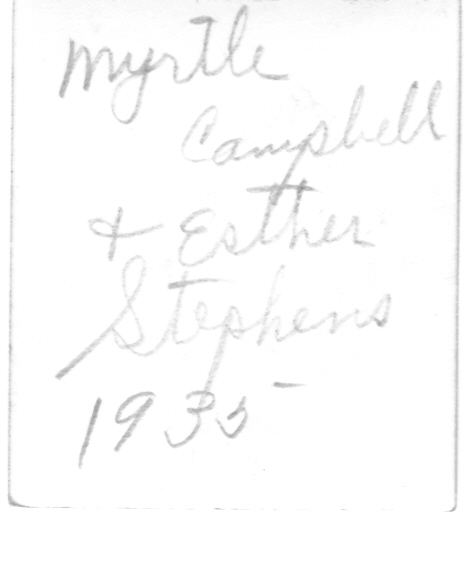 Myrtle
Campbell
+ Esther
Stephens
1935